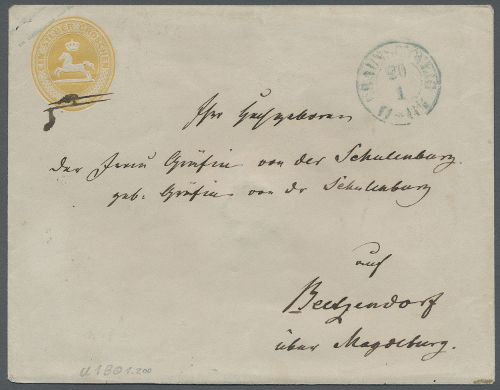 EIN SILBER GROSCHEN
BRAUNSCHWEIG
20
1
Ihro Hochgeboren
der Frau Gräfin von der Schulenburg.
geb. Gräfin von dr Schulenburg
auf
Beetzendorf
über Magdeburg.
U 1BQ 1.200